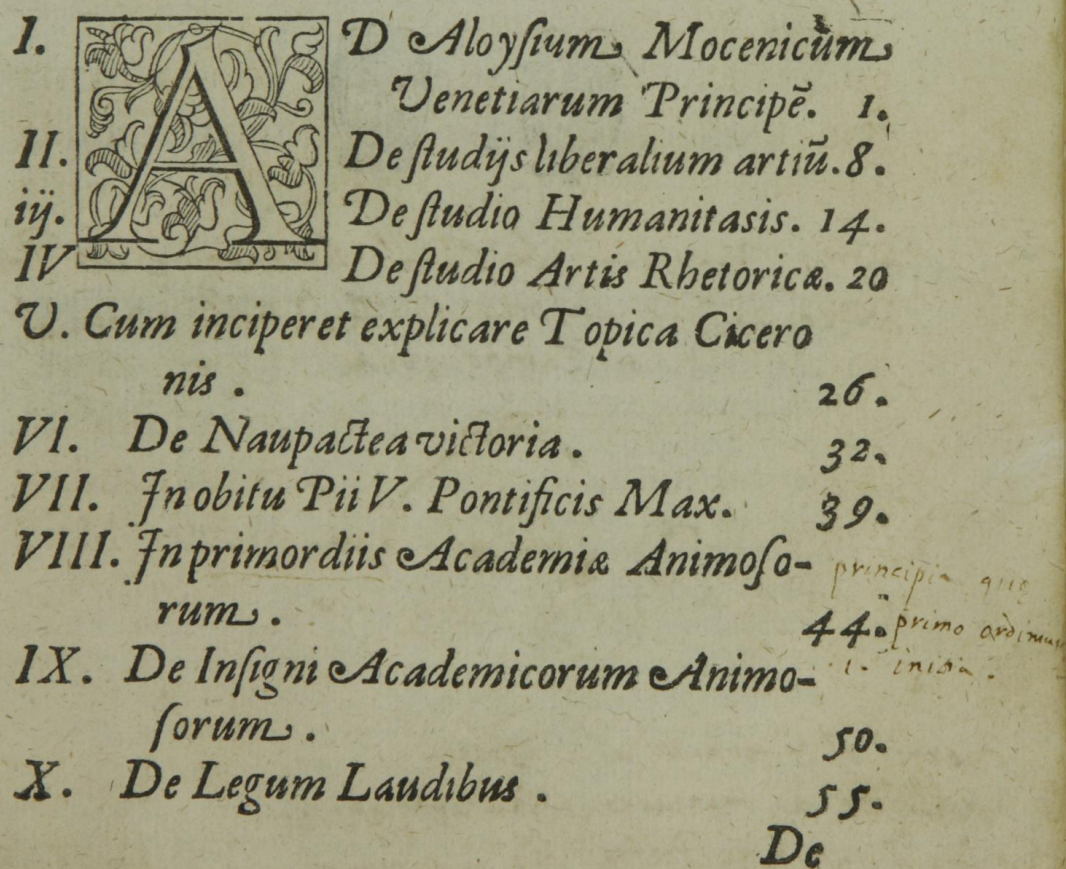 I. AD Aloyſium Mocenicum
Venetiarum Principē. 1.
II. De ſtudijs liberalium artiū. 8.
iij. De ſtudio Humanitasis. 14.
IV De ſtudio Artis Rhetoricæ. 20
V. Cum inciperet explicare Topica Cicero
nis . 26.
VI. De Naupactea victoria . 32.
VII. In obitu Pii V. Pontificis Max. 39.
VIII. In primordiis Academiæ Animoſo-
rum . 44.
principia
primo
initia .
IX. De Inſigni Academicorum Animo-
ſorum . 50.
X. De Legum Laudibus . 55.
De